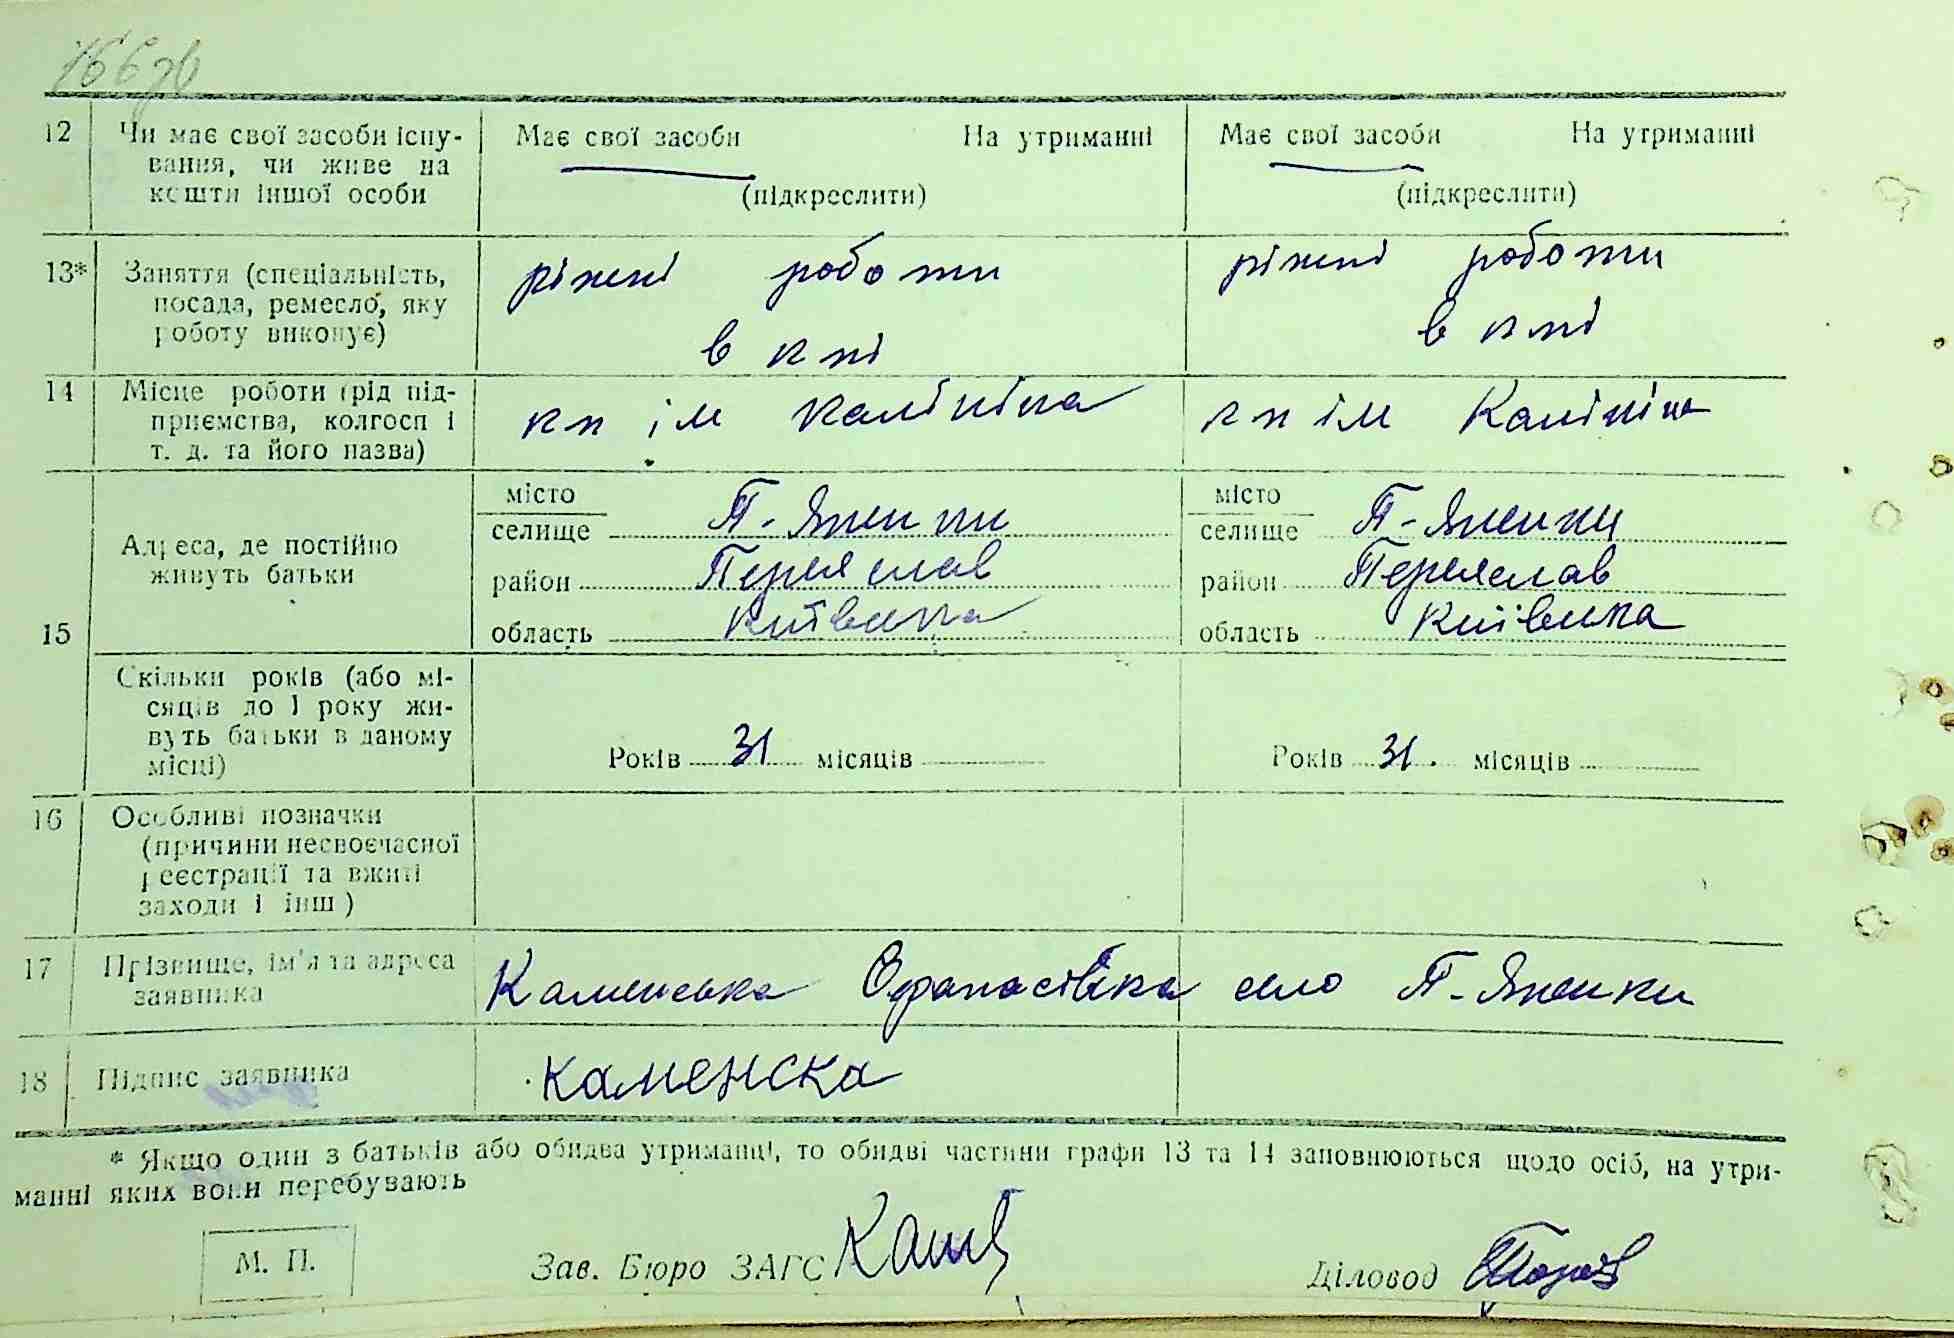 166зв
12 Чи має свої засоби існу- Має свої засоби На утриманні Має свої засоби На утриманні
вання, чи живе на
кошти іншої особи (підкреслити) (підкреслити)
13* Заняття (спеціальність, ріжні роботи ріжні роботи
посада, ремесло, яку
роботу виконує) в кпі в кпі
14 Місце роботи (рід під-
приємства, колгосп і кп ім Калініна кп ім Калініна
т. д. та його назва)
місто місто
селище П-Яненки селище П-Яненки
Адреса, де постійно
живуть батьки район Переяслав район Переяслав
15 область Київська область Київська
Скільки років (або мі-
сяців до 1 року жи-
вуть батьки в даному
місці) Років 31 місяців Років 31. місяців
16 Особливі позначки
(причини несвоєчасної
реєстрації та вжиті
заходи і інш)
17 Прізвище, ім'я та адреса
заявника Каменська село П-Яненки
18 Підпис заявника Каменска
* Якщо один з батьків або обидва утриманці, то обидві частини графи 13 та 14 заповнюються щодо осіб, на утри-
манні яких вони перебувають
М. П. Зав. Бюро ЗАГС Діловод